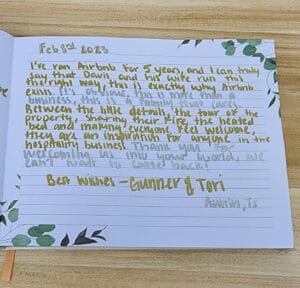 Feb 3rd 2023
I've ran Airbnb for 5 years, and I can truly
say that Davis and his wife run this
the right way, this is exactly why Airbnb
exists. It's obvious, this is more than a
business, this is a family that cares.
Between the little details, the tour of the
property, sharing their fire, the heated
bed and making everyone feel welcome,
they are an inspiration for anyone in the
hospitality business. Thank you for
welcoming us into your world, we
can't wait to come back!
Best Wishes - Gunner & Tori
Austin, Tx